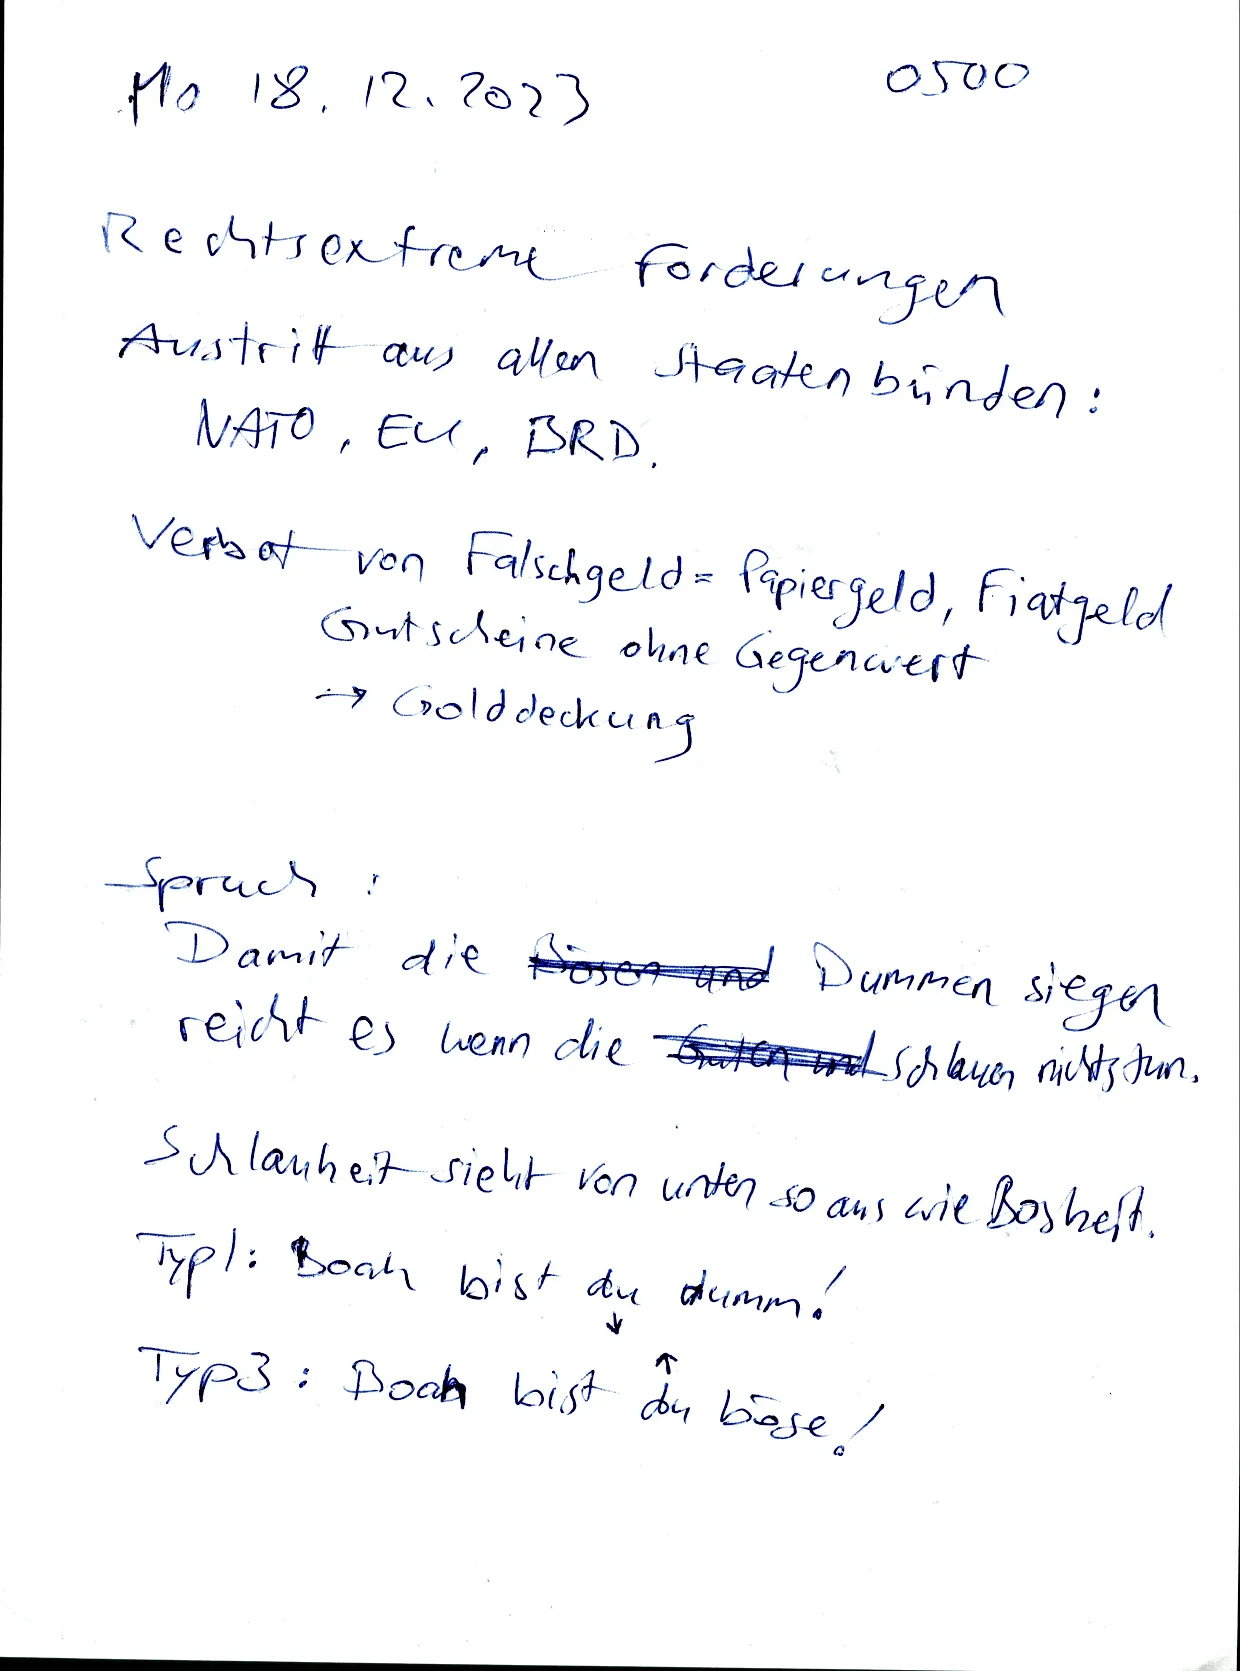 Mo 18.12.2023 0500
Rechtsextreme Forderungen
Austritt aus allen Staatenbünden:
NATO, EU, BRD.
Verbot von Falschgeld = Papiergeld, Fiatgeld
Gutscheine ohne Gegenwert
→ Golddeckung
Spruch:
Damit die Bösen und Dummen siegen
reicht es wenn die Guten und Schlauen nichts tun.
Schlauheit sieht von unten so aus wie Bosheit.
Typ1: Boah bist du dumm!
↓
↑
Typ3: Boah bist du böse!